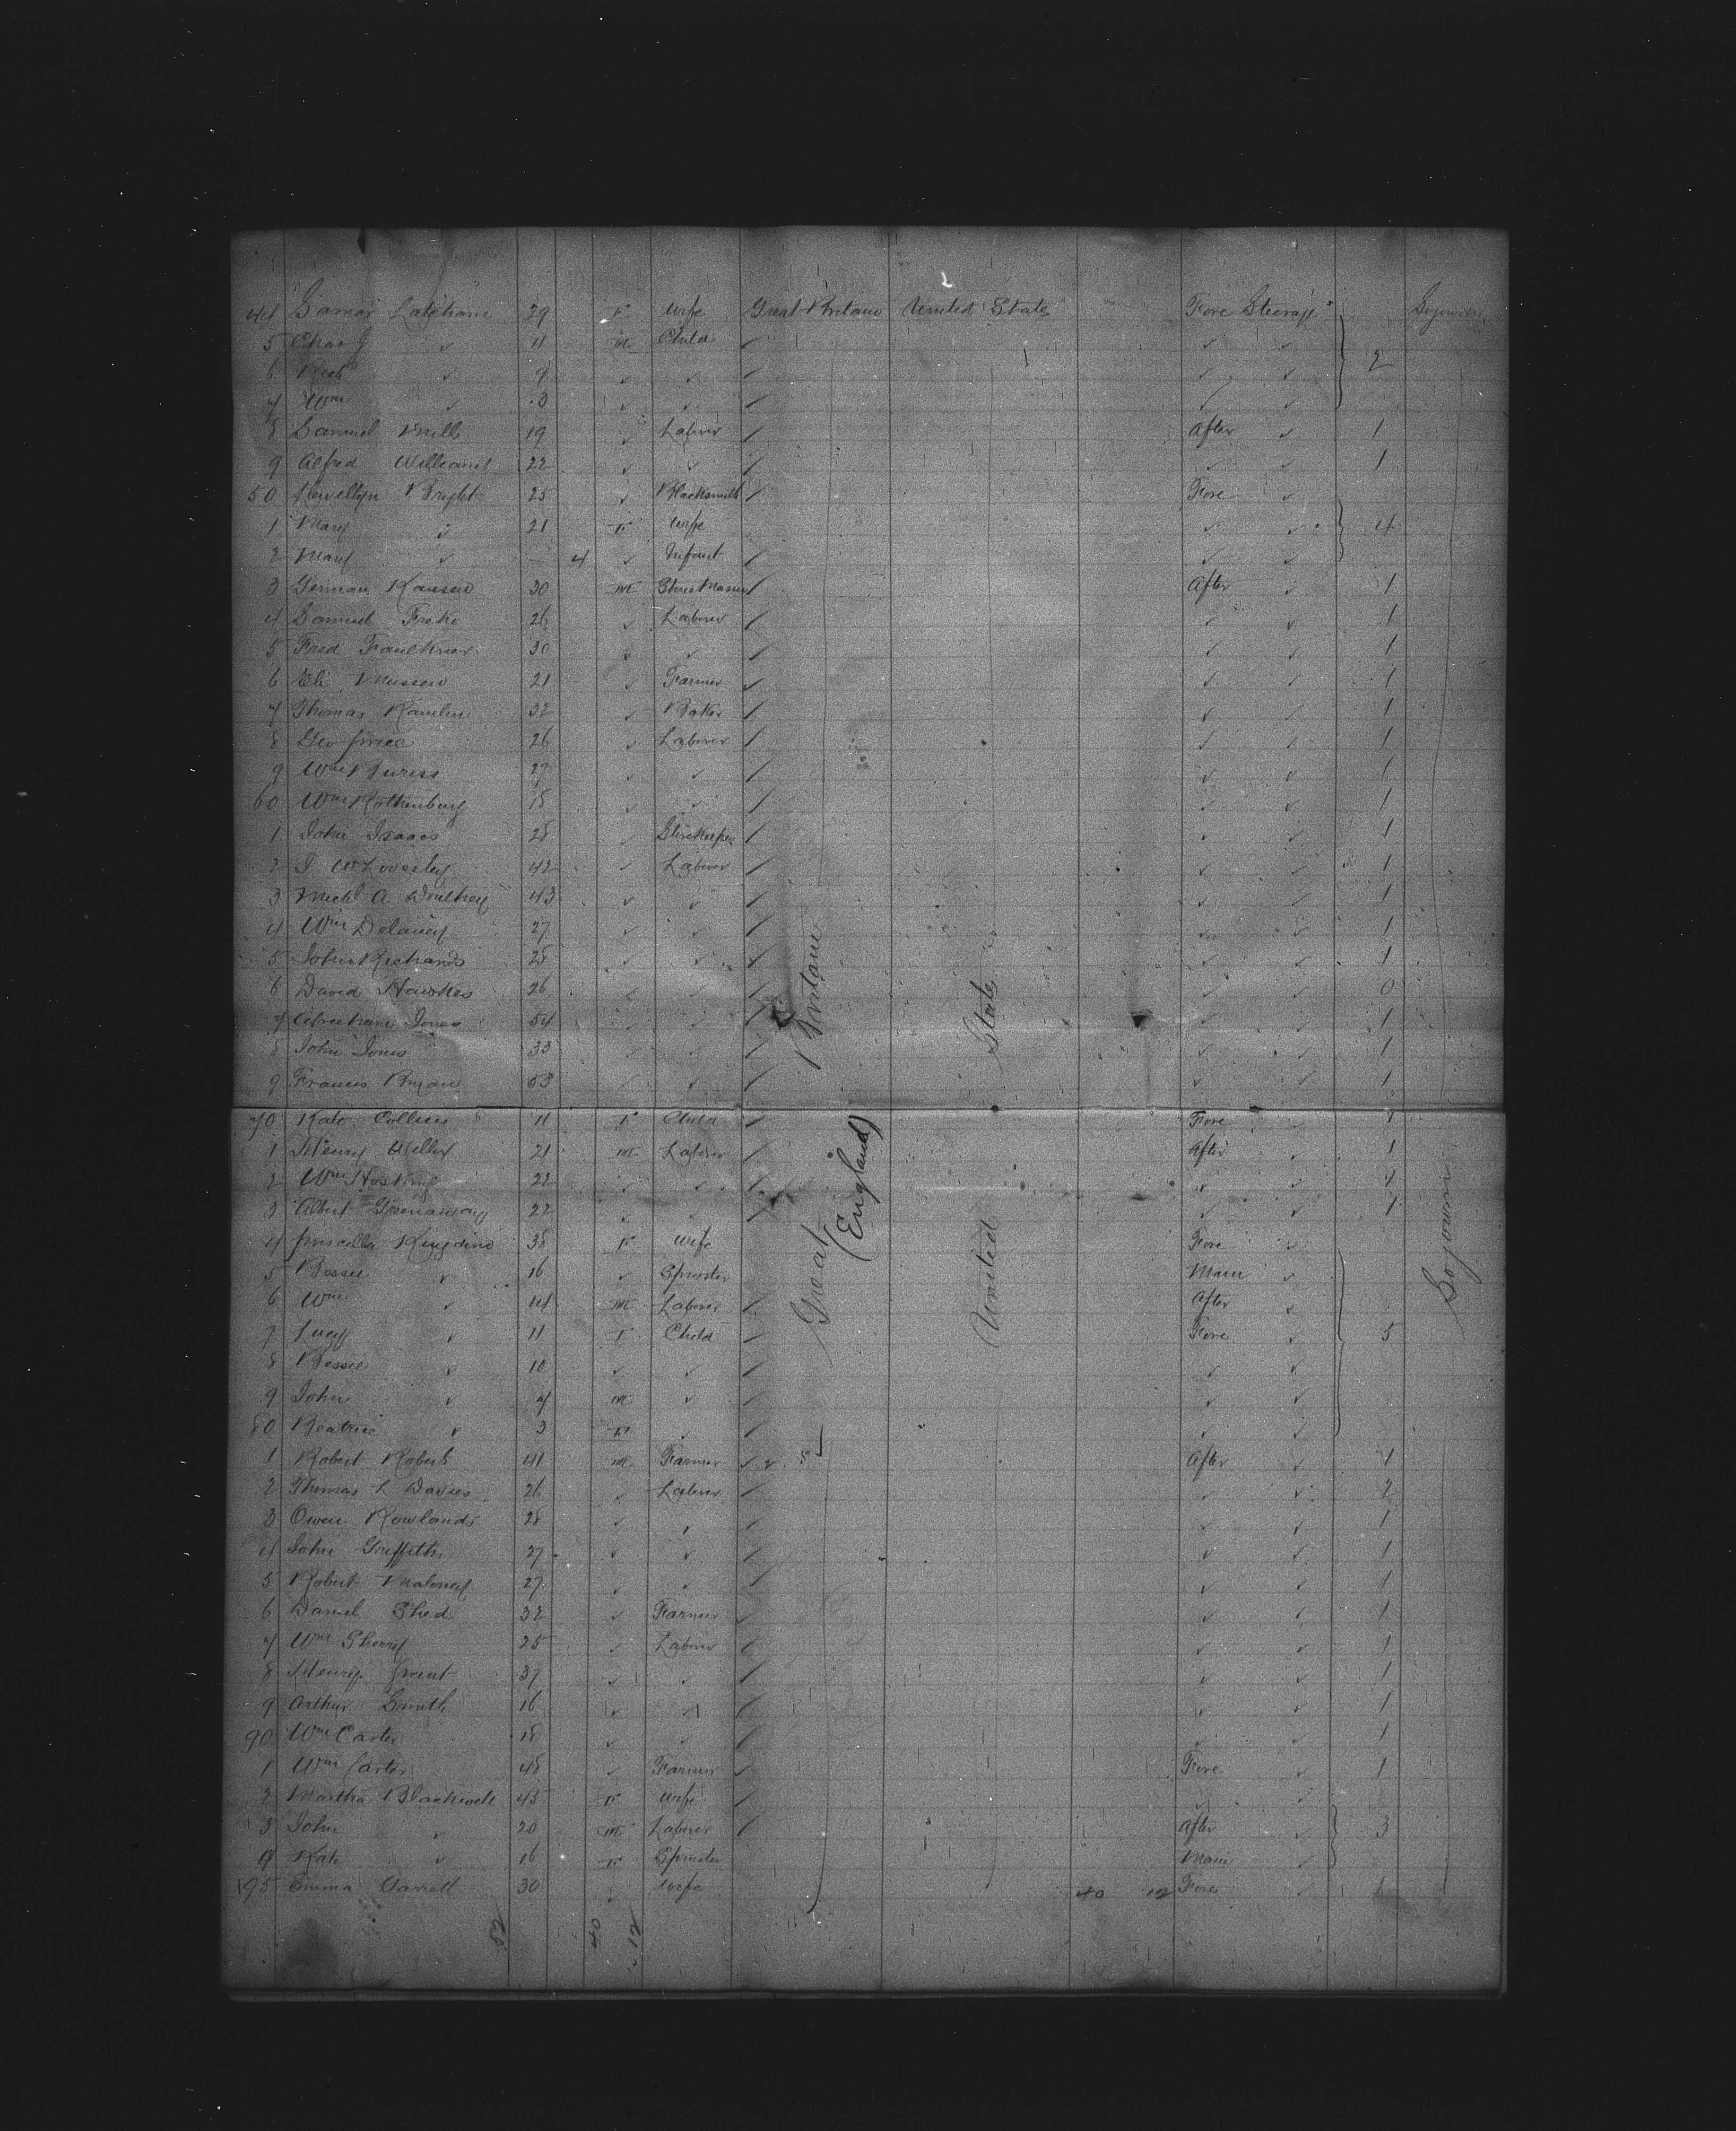 44 Latcham 29 F Wife Great Britain United States Fore Steerage Sojourn
5 Chas J ✓ 11 m Child ✓ ✓ ✓
6 Richd ✓ 9 ✓ ✓ ✓ ✓ ✓ 2
7 Wm ✓ 3 ✓ ✓ ✓ ✓ ✓
8 Samuel 19 ✓ Laborer ✓ After ✓ 1
9 Alfred Williams 22 ✓ ✓ ✓ ✓ ✓ 1
50 Llewellyn Bright 25 ✓ Blacksmith ✓ Fore ✓
1 Mary ✓ 21 F Wife ✓ ✓ 4
2 Mary ✓ 4 ✓ Infant ✓ ✓ ✓
3 30 m ✓ After ✓ 1
4 Samuel 26 ✓ Laborer ✓ ✓ ✓ 1
5 Fred Faulkner 30 ✓ ✓ ✓ ✓ ✓ 1
6 Eli 21 ✓ Farmer ✓ ✓ ✓ 1
7 Thomas 32 ✓ Baker ✓ ✓ ✓ 1
8 Geo 26 ✓ Laborer ✓ ✓ ✓ 1
9 Wm 27 ✓ ✓ ✓ ✓ ✓ 1
60 Wm Rothenburg 18 ✓ ✓ ✓ ✓ ✓ 1
1 John Isaacs 28 ✓ Storekeeper ✓ ✓ ✓ 1
2 Loversley 42 ✓ Laborer ✓ ✓ ✓ 1
3 Michl A 43 ✓ ✓ ✓ ✓ ✓ 1
4 Wm Delaney 27 ✓ ✓ ✓ ✓ ✓ 1
5 John Richards 28 ✓ ✓ ✓ ✓ ✓ 1
6 David Hawkes 26 ✓ ✓ ✓ ✓ ✓ 0
7 Abraham Jones 54 ✓ ✓ ✓ ✓ ✓ 1
8 John Jones 33 ✓ ✓ ✓ ✓ ✓ 1
9 Francis Bryan 53 ✓ ✓ ✓ ✓ ✓ 1
Great Britain
(England)
United States
Sojourn
70 Kate Collins 11 F Child ✓ Fore ✓ 1
1 Henry 21 m Laborer ✓ After ✓ 1
2 Wm Hosking 22 ✓ ✓ ✓ ✓ ✓ 1
3 Albert Greenaway 22 ✓ ✓ ✓ ✓ ✓ 1
4 Priscilla Kingdon 38 F Wife Fore ✓
5 Bessie ✓ 16 ✓ Spinster Main ✓
6 Wm ✓ 14 m Laborer ✓ After ✓
7 Lucy ✓ 11 F Child ✓ Fore ✓ 5
8 Bessie ✓ 10 ✓ ✓ ✓ ✓ ✓
9 John ✓ 7 m ✓ ✓ ✓ ✓
80 Beatrice ✓ 3 F ✓ ✓ ✓ ✓
1 Robert Roberts 41 m Farmer ✓ After ✓ 1
2 Thomas L Davies 26 ✓ Laborer ✓ ✓ ✓ 2
3 Owen Rowlands 28 ✓ ✓ ✓ ✓ ✓ 1
4 John Griffiths 27 ✓ ✓ ✓ ✓ ✓ 1
5 Robert Maloney 27 ✓ ✓ ✓ ✓ ✓ 1
6 Daniel Shed 32 ✓ Farmer ✓ ✓ ✓ 1
7 Wm Sherry 25 ✓ Laborer ✓ ✓ ✓ 1
8 Henry 37 ✓ ✓ ✓ ✓ ✓ 1
9 Arthur Smith 16 ✓ ✓ ✓ ✓ ✓ 1
90 Wm Carter 18 ✓ ✓ ✓ ✓ ✓ 1
1 Wm Carter 48 ✓ Farmer ✓ Fore ✓ 1
2 Martha Blackwell 45 F Wife ✓ ✓ ✓
3 John ✓ 20 m Laborer ✓ After ✓ 3
4 Kate ✓ 16 F Spinster Main ✓
195 Emma Garrett 30 ✓ Wife 40 12 Fore ✓ 1
40 12